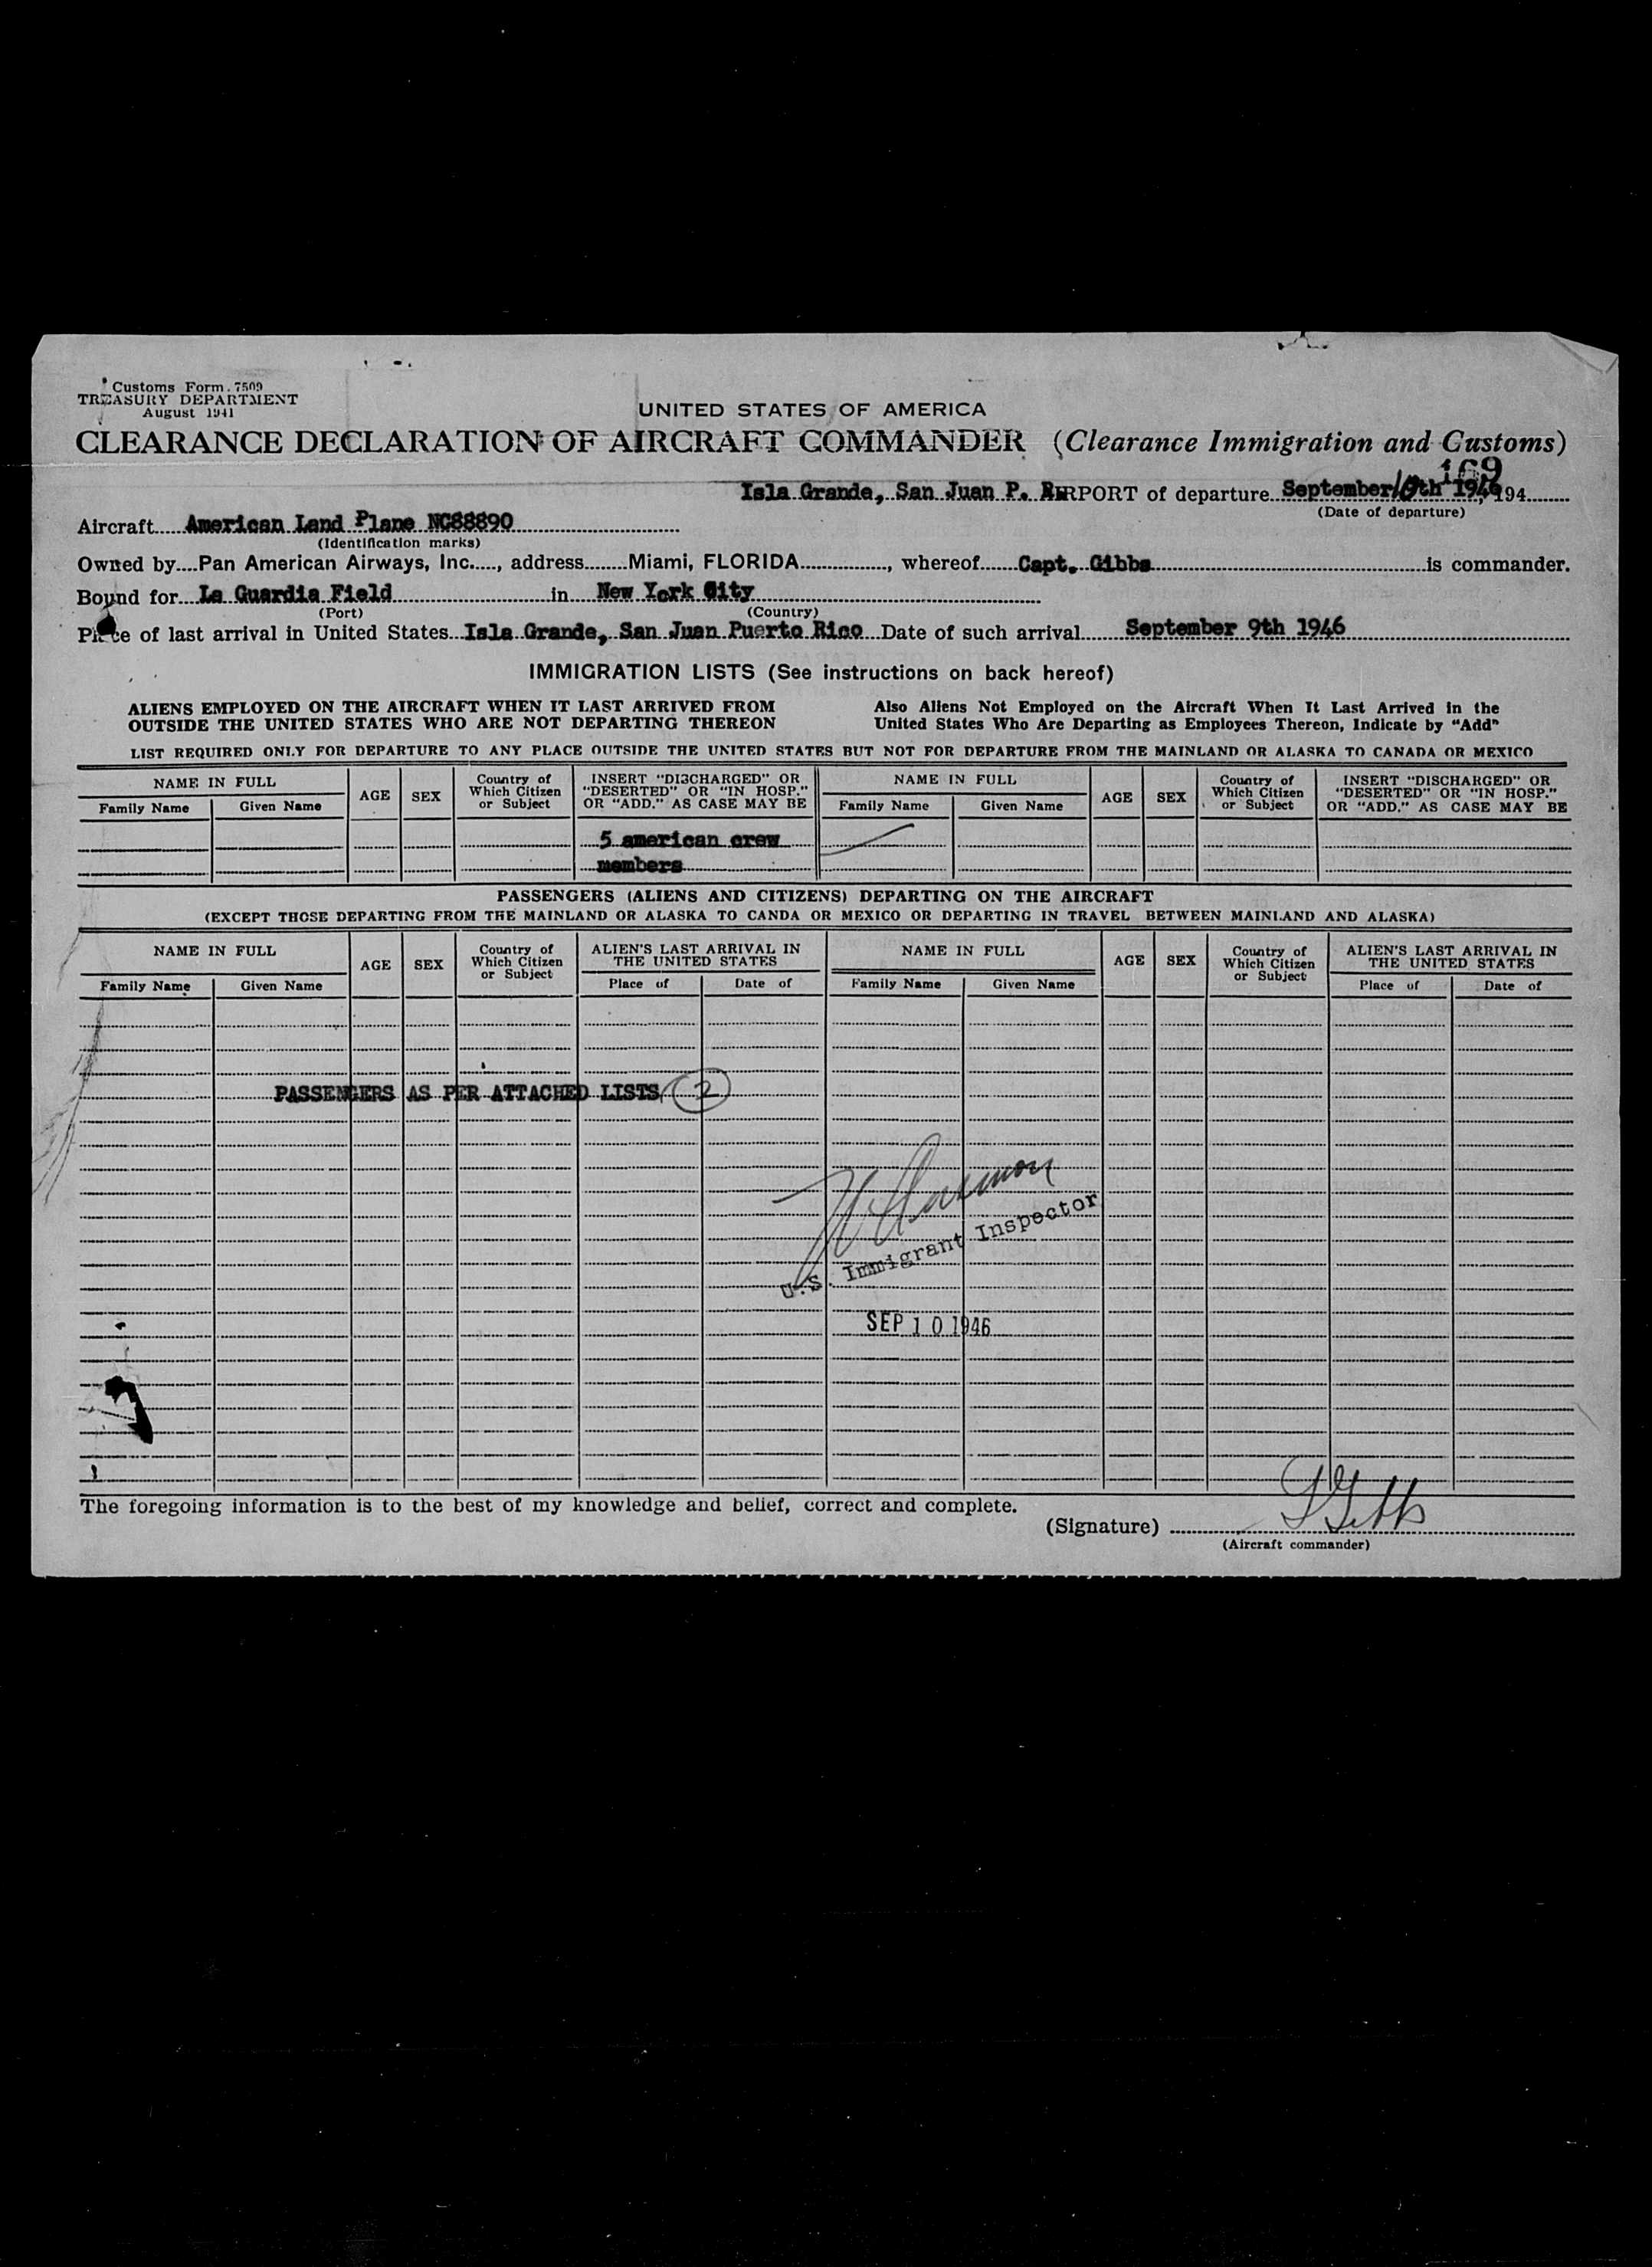 Customs Form 7509
TREASURY DEPARTMENT
August 1941
UNITED STATES OF AMERICA
CLEARANCE DECLARATION OF AIRCRAFT COMMANDER (Clearance Immigration and Customs)
169
Isla Grande, San Juan P. R. AIRPORT of departure September 10th 1946, 194
(Date of departure)
Aircraft American Land Plane NC88890
(Identification marks)
Owned by Pan American Airways, Inc., address Miami, FLORIDA, whereof Capt. Gibbs is commander.
Bound for La Guardia Field in New York City
(Port) (Country)
Place of last arrival in United States Isla Grande, San Juan Puerto Rico Date of such arrival September 9th 1946
IMMIGRATION LISTS (See instructions on back hereof)
ALIENS EMPLOYED ON THE AIRCRAFT WHEN IT LAST ARRIVED FROM
OUTSIDE THE UNITED STATES WHO ARE NOT DEPARTING THEREON
Also Aliens Not Employed on the Aircraft When It Last Arrived in the
United States Who Are Departing as Employees Thereon, Indicate by "Add"
LIST REQUIRED ONLY FOR DEPARTURE TO ANY PLACE OUTSIDE THE UNITED STATES BUT NOT FOR DEPARTURE FROM THE MAINLAND OR ALASKA TO CANADA OR MEXICO
NAME IN FULL
Family Name Given Name
AGE
SEX
Country of
Which Citizen
or Subject
INSERT "DISCHARGED" OR
"DESERTED" OR "IN HOSP."
OR "ADD." AS CASE MAY BE
NAME IN FULL
Family Name Given Name
AGE
SEX
Country of
Which Citizen
or Subject
INSERT "DISCHARGED" OR
"DESERTED" OR "IN HOSP."
OR "ADD." AS CASE MAY BE
5 american crew
members
PASSENGERS (ALIENS AND CITIZENS) DEPARTING ON THE AIRCRAFT
(EXCEPT THOSE DEPARTING FROM THE MAINLAND OR ALASKA TO CANDA OR MEXICO OR DEPARTING IN TRAVEL BETWEEN MAINLAND AND ALASKA)
NAME IN FULL
Family Name Given Name
AGE
SEX
Country of
Which Citizen
or Subject
ALIEN'S LAST ARRIVAL IN
THE UNITED STATES
Place of Date of
NAME IN FULL
Family Name Given Name
AGE
SEX
Country of
Which Citizen
or Subject
ALIEN'S LAST ARRIVAL IN
THE UNITED STATES
Place of Date of
PASSENGERS AS PER ATTACHED LISTS 2
U.S. Immigrant Inspector
SEP 10 1946
The foregoing information is to the best of my knowledge and belief, correct and complete.
(Signature) Gibbs
(Aircraft commander)